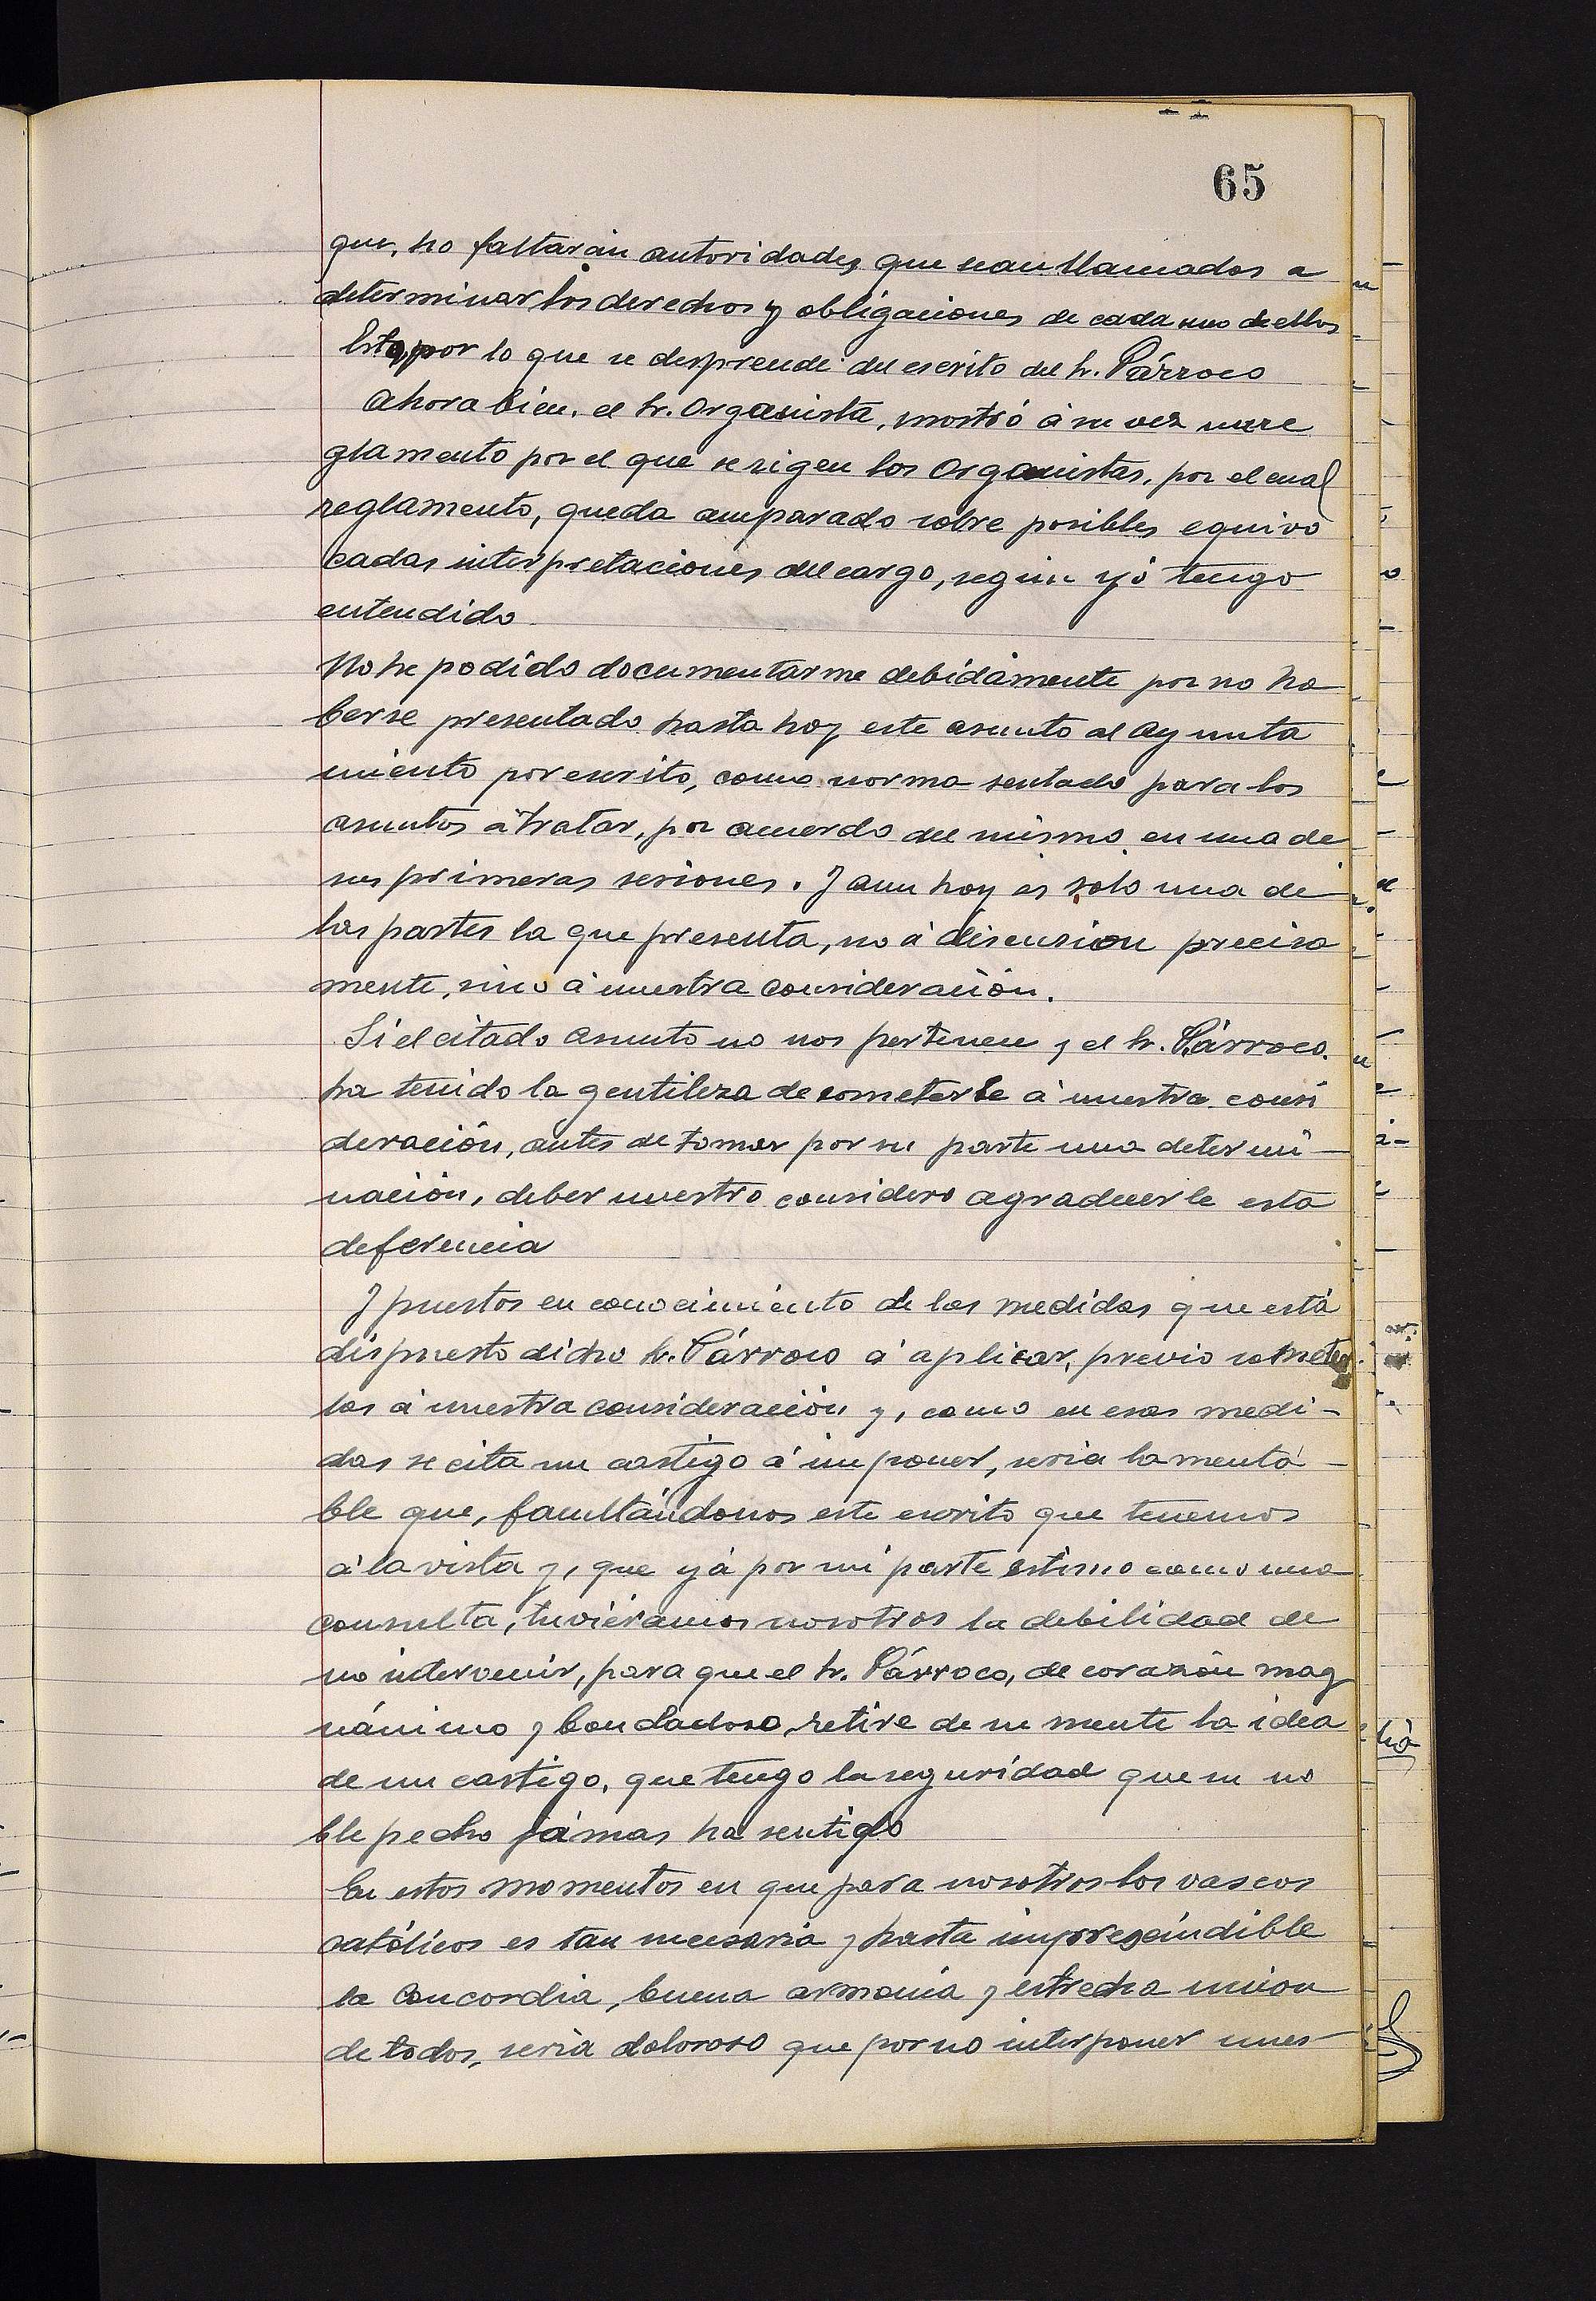 65
que, no faltarán autoridades que sean llamados a
determinar los derechos y obligaciones de cada uno de ellos
Esto, por lo que se desprende del escrito del Sr. Párroco
Ahora bien, el Sr. Organista, mostró á su vez un re
glamento por el que se rigen los Organistas, por el cual
reglamento, queda amparado sobre posibles equivo
cadas interpretaciones del cargo, según yó tengo
entendido
No he podido documentarme debidamente por no ha
berse presentado hasta hoy este asunto al Ayunta
miento por escrito, como norma sentado para los
asuntos á tratar, por acuerdo del mismo en una de
sus primeras sesiones. Y aun hoy es solo una de
las partes la que presenta, no á discusion precisa
mente, sino á nuestra consideración.
Si el citado asunto no nos pertenece y el Sr. Párroco
ha tenido la gentileza de someterle á nuestra consi
deración, antes de tomar por su parte una determi-
nación, deber nuestro considero agradecerle esta
deferencia
Y puestos en conocimiento de las medidas que está
dispuesto dicho Sr. Párroco á aplicar, previo someter
las á nuestra consideración y, como en esas medi-
das se cita un castigo á imponer, seria lamentá-
ble que, facultándonos este escrito que tenemos
á la vista y, que yá por mi parte estimo como una
consulta, tuviéramos nosotros la debilidad de
no intervenir, para que el Sr. Párroco, de corazón mag
nánimo y bondadoso, retire de su mente la idea
de un castigo, que tengo la seguridad que su no
ble pecho jámas ha sentido
En estos momentos en que para nosotros los vascos
católicos es tan necesaria y hasta imprescindible
la concordia, buena armonia y estrecha union
de todos, seria doloroso que por no interponer nues-